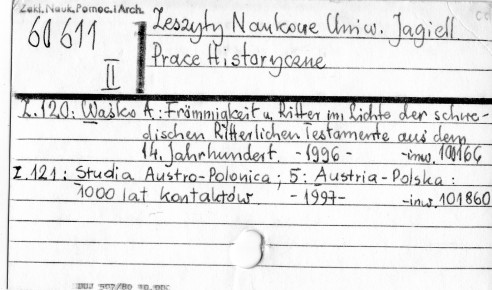 Zakł. Nauk. Pomoc. i Arch.
60 611
II
Zeszyty Naukowe Uniw. Jagiell
Prace Historyczne
Z.120: Waśko A.: Frömmigkeit u. Ritter im Lichte der schwe-
dischen Ritterlichen Testamente aus dem
14. Jahrhundert. -1996- -inw. 100166
Z.121: Studia Austro-Polonica; 5: Austria-Polska:
1000 lat kontaktów -1997- -inw. 101860